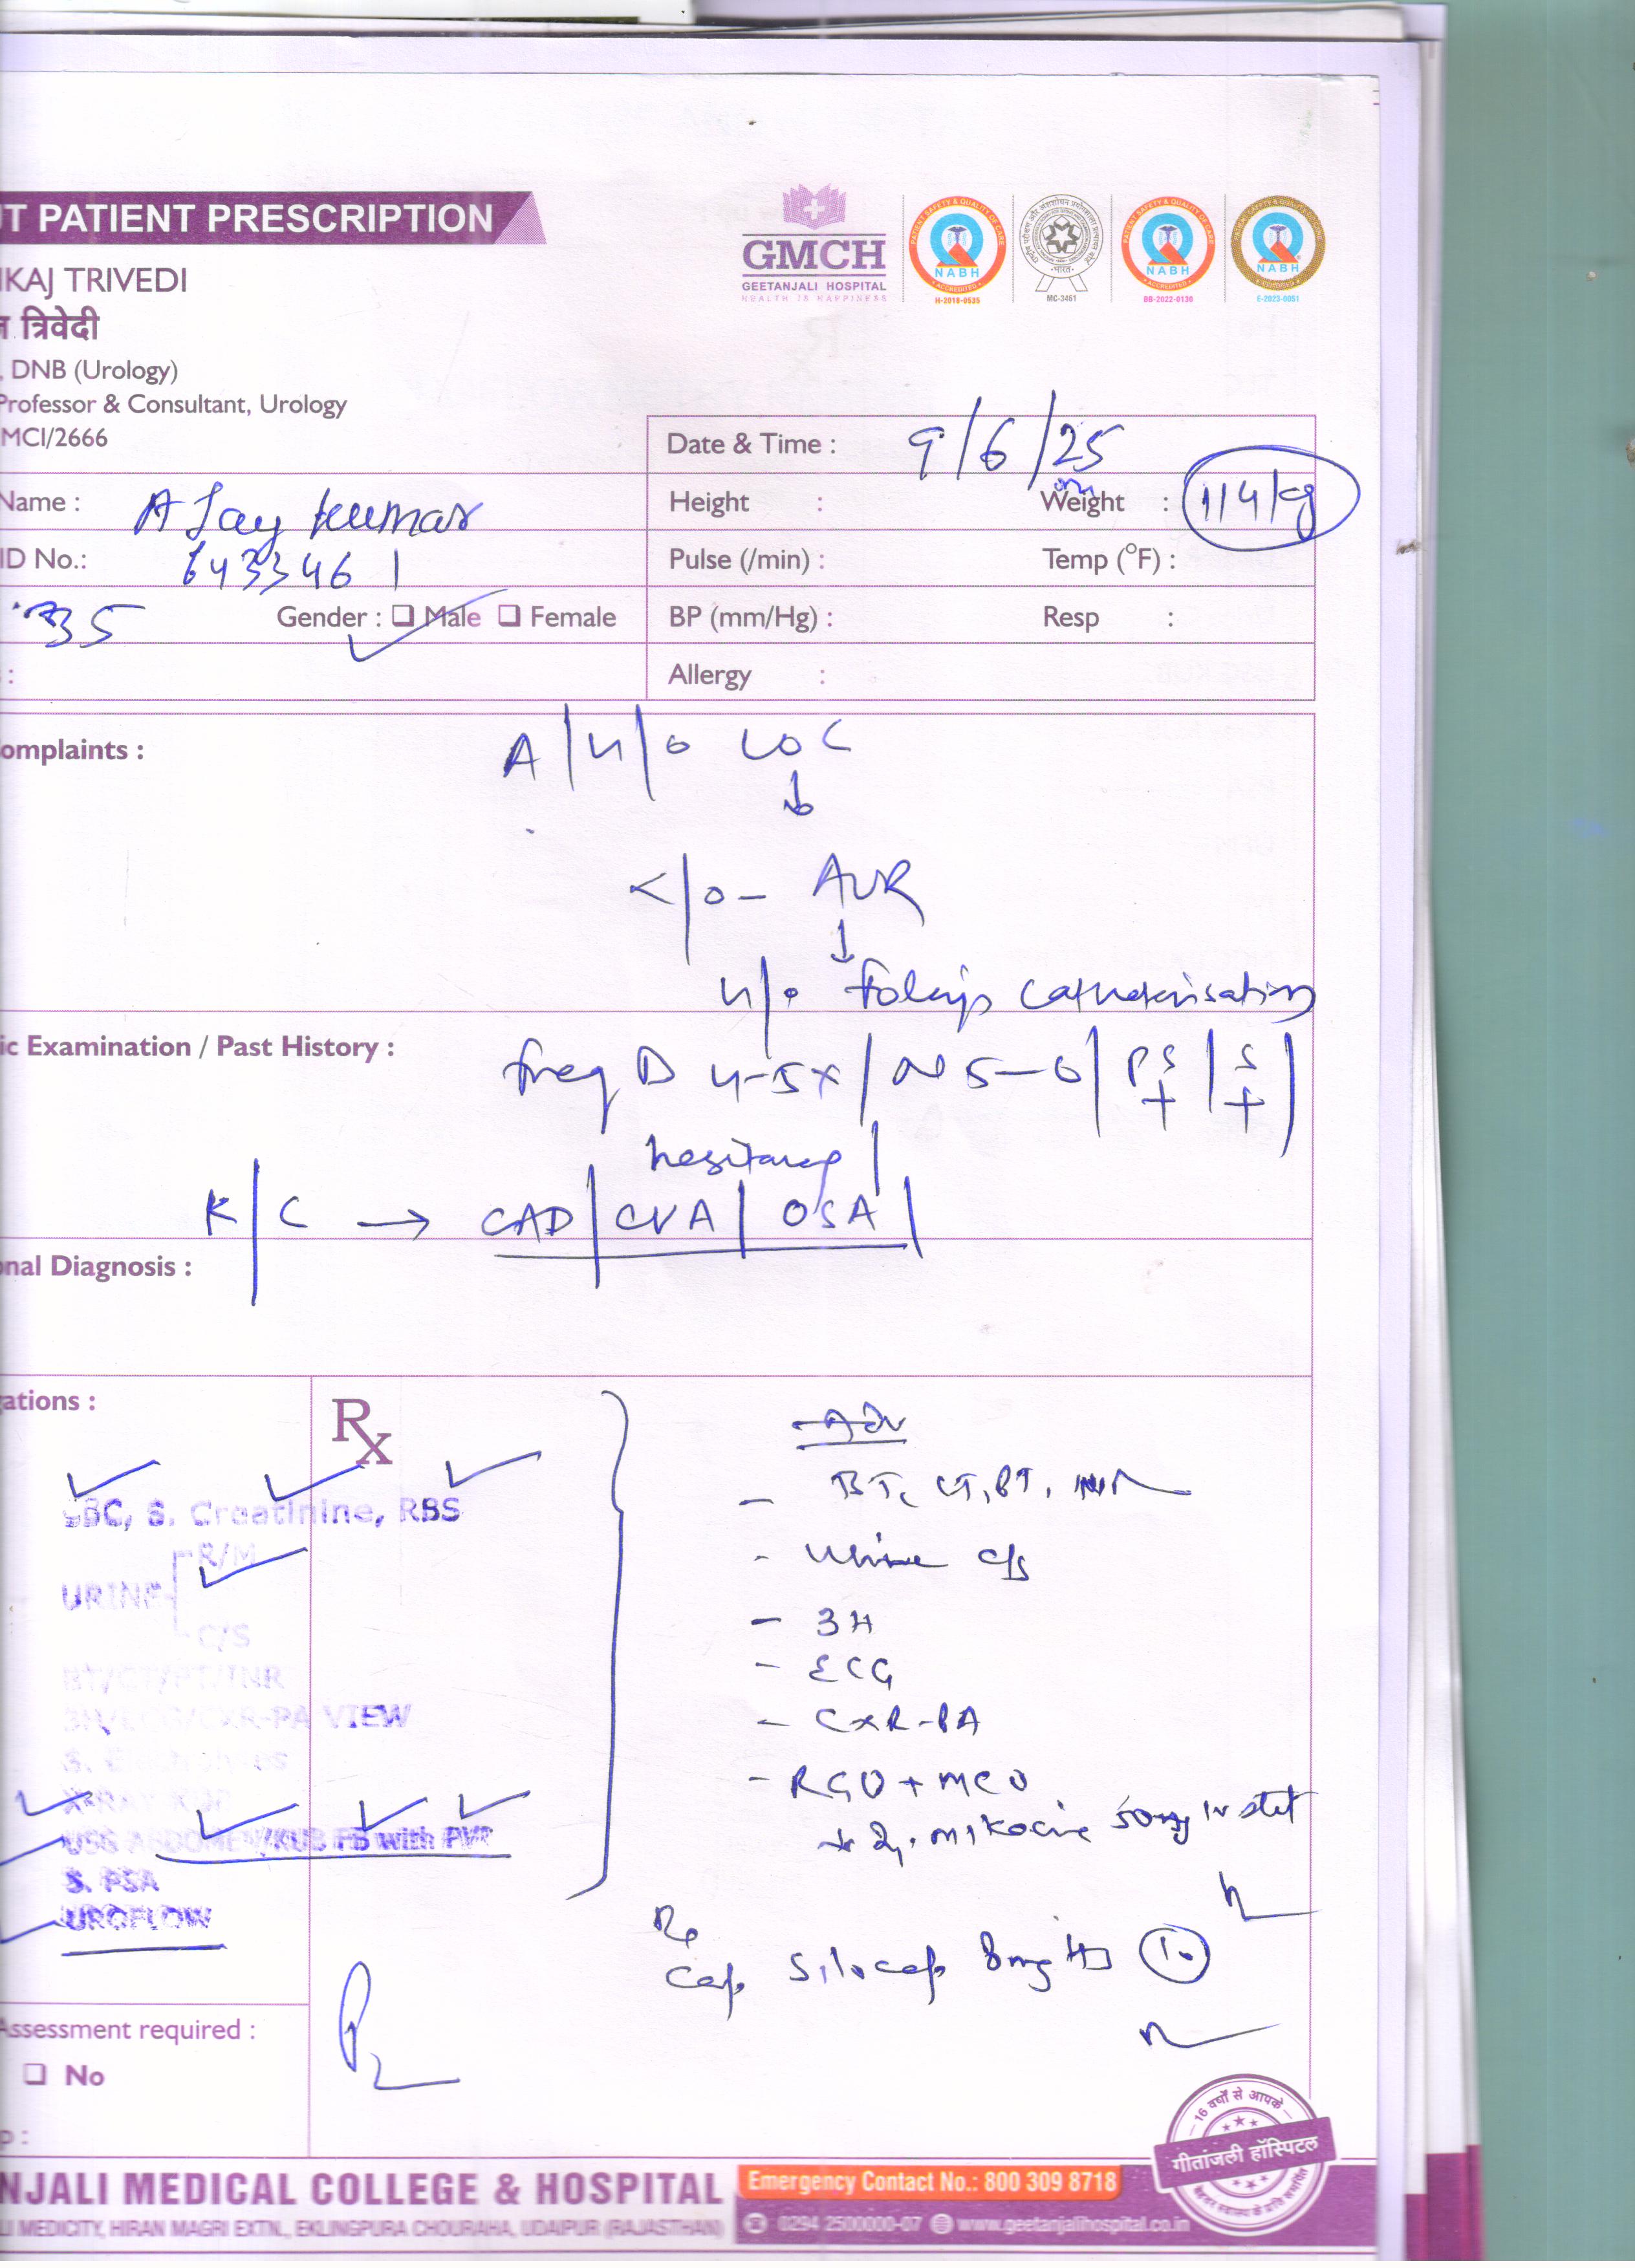 T PATIENT PRESCRIPTION
GMCH
GEETANJALI HOSPITAL
HEALTH IS HAPPINESS
NABH
H-2018-0535
MC-3461
NABH
BB-2022-0130
NABH
E-2023-0051
KAJ TRIVEDI
त्रिवेदी
, DNB (Urology)
Professor & Consultant, Urology
MCI/2666
Date & Time : 9/6/25
Name : Ajay Kumar
Height :
Weight : 114 kg
ID No.: 6433461
Pulse (/min) :
Temp (°F) :
35
Gender : ☐ Male ☐ Female
BP (mm/Hg) :
Resp :
Allergy :
omplaints :
A/H/O LOC
↓
C/O - AUR
↓
H/O Foley's catheterisation
ic Examination / Past History :
freq D 4-5x / N 5-6 | PS + | S + |
hesitancy |
K/C → CAD | CVA | OSA |
nal Diagnosis :
ations :
Rx
CBC, S. Creatinine, RBS
URINE
R/M
C/S
BT/CT/PT/INR
3H/ECG/CXR-PA VIEW
S. Electrolytes
X-RAY KUB
USG ABDOMEN/KUB FB with PVR
S. PSA
UROFLOW
Adv
- BT, CT, PT, INR
- Urine c/s
- 3H
- ECG
- CXR-PA
- RGU + MCU
Mikacin 50mg IV stat
Cap Silocap 8mg HS
Assessment required :
☐ No
16 वर्षों से आपके
गीतांजली हॉस्पिटल
NJALI MEDICAL COLLEGE & HOSPITAL
Emergency Contact No.: 800 309 8718
LI MEDICITY, HIRAN MAGRI EXTN., EKLINGPURA CHOURAHA, UDAIPUR (RAJASTHAN)
0294 2500000-07
www.geetanjalihospital.co.in